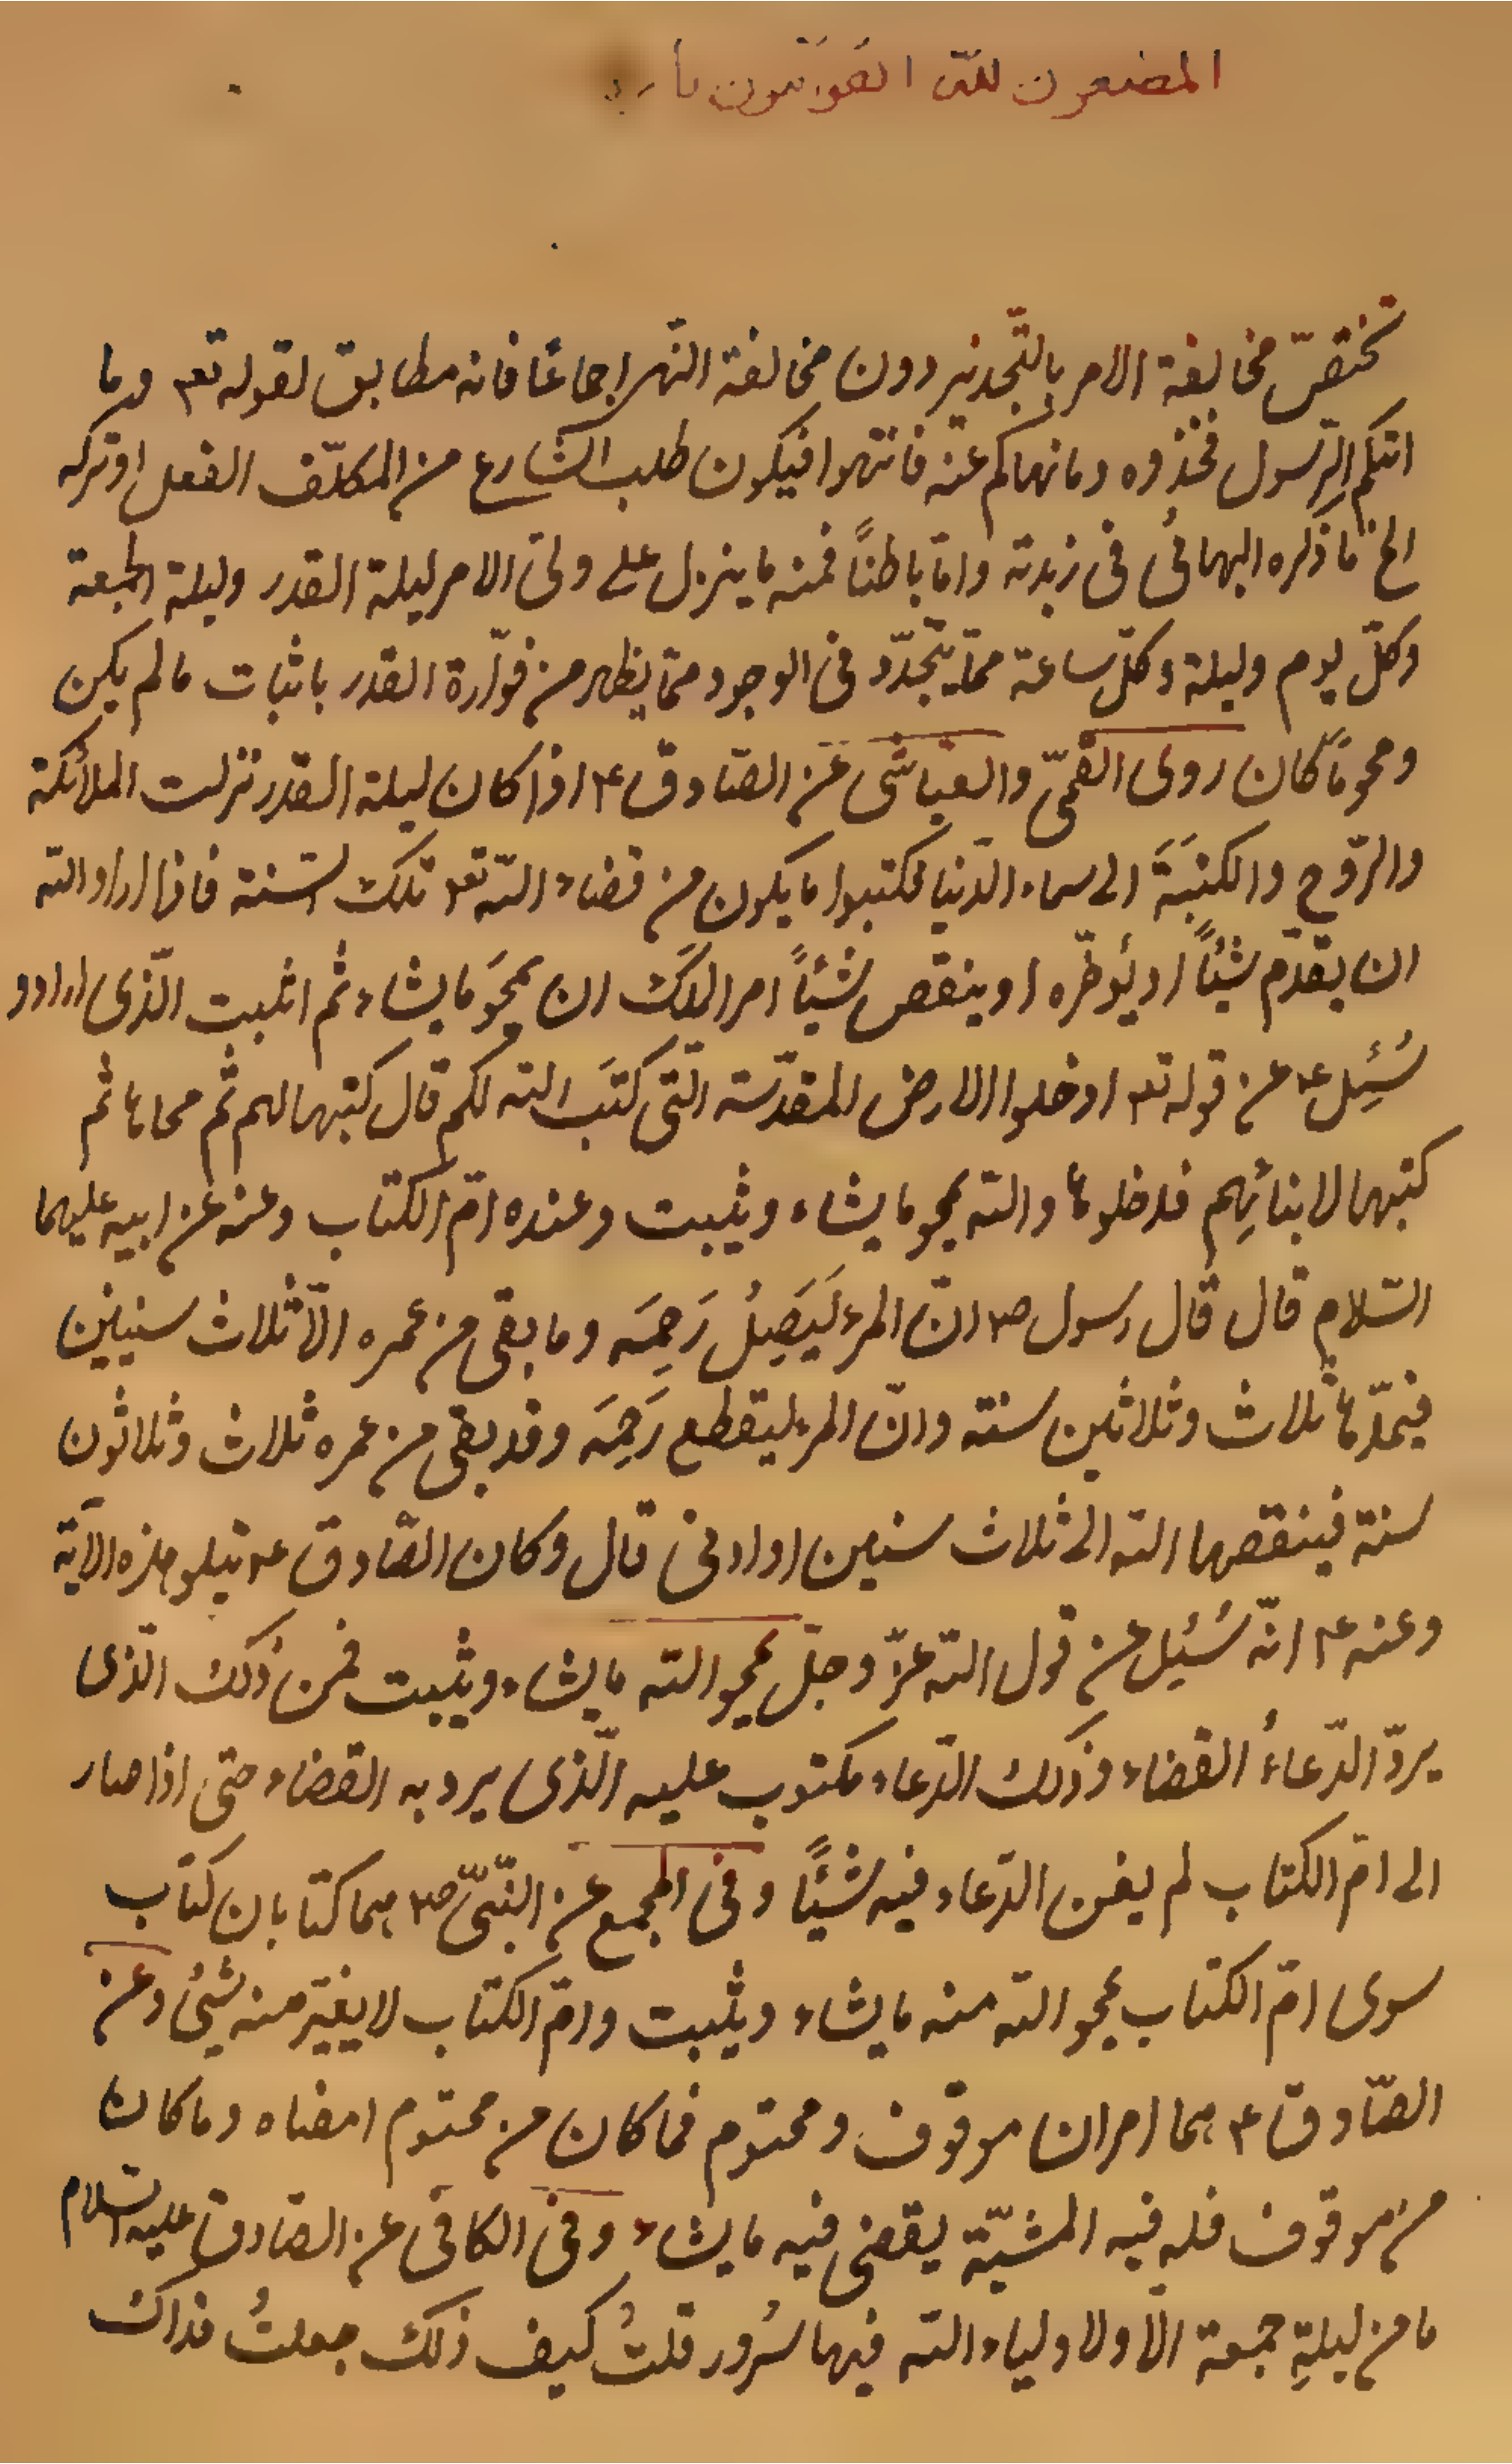 المضعون للّه القوّتون با
تختصّ مخالفة الامر بالتّحذير دون مخالفة النّهى اجماعًا فانه مطابق لقوله تع۴ وما
اتيكم الرّسول فخذوه ومانهاكم عنه فانتهوا فيكون طلب الشّارع من المكلّف الفعل او تركه
الخ ما ذكره البهائى فى زبدته وامّا باطنًا فمنه ما ينزل على ولىّ الامر ليلة القدر وليلة الجمعة
وكلّ يوم وليلة وكلّ ساعة ممّا يتجدّد فى الوجود ممّا يظهر من فوّارة القدر باثبات ما لم يكن
ومحو ما كان روى القمّى والعيّاشى عن الصّادق ۴ اذا كان ليلة القدر نزلت الملائكة
والرّوح والكتبَةَ الى سماء الدّنيا فكتبوا ما يكون من قضاء اللّه تع۴ تلك السّنة فاذا اراد اللّه
ان يقدّم شيئًا او يُؤخّره او ينقص شيئًا امر الملك ان يمحَو ما يشاء ثم اثبت الّذى اراد و
سُئِل ۴ عن قوله تع۴ ادخلوا الارض المقدّسة الّتى كتَب اللّه لكم قال كتبها لهم ثم محاها ثم
كتبها لابنائِهم فدخلوها واللّه يمحو ما يشاء ويثبت وعنده امّ الكتاب وعنه عن ابيه عليهما
السّلام قال قال رسول ص۴ انّ المرء ليَصِلُ رَحِمَه وما بقى من عمره الّا ثلاث سنين
فيمدّها ثلاث وثلاثين سنة وانّ المرء ليقطع رَحِمَه وقد بقى من عمره ثلاث وثلاثون
سنة فينقصها اللّه الى ثلاث سنين او ادنى قال وكان الصّادق ۴ يتلو هذه الآية
وعنه ۴ انّه سُئِل عن قول اللّه عزّ وجلّ يمحو اللّه ما يشاء ويثبت فمن ذلك الّذى
يردّ الدّعاءُ القضاء وذلك الدّعاء مكتوب عليه الّذى يرد به القضاء حتى اذا صار
الى امّ الكتاب لم يغن الدّعاء فيه شيئًا وفى المجمع عن النّبىّ ص۴ هما كتابان كتاب
سوى امّ الكتاب يمحو اللّه منه ما يشاء ويثبت وامّ الكتاب لا يغيّر منه شيئ وعن
الصّادق ۴ هما امران موقوف ومحتوم فما كان من محتوم امضاه وما كان
من موقوف فله فيه المشيّة يقضى فيه ما يشاء وفى الكافى عن الصّادق عليه السّلام
ما من ليلةِ جمعة الّا ولاولياء اللّه فيها سُرُور قلتُ كيف ذلك جعلتُ فداك